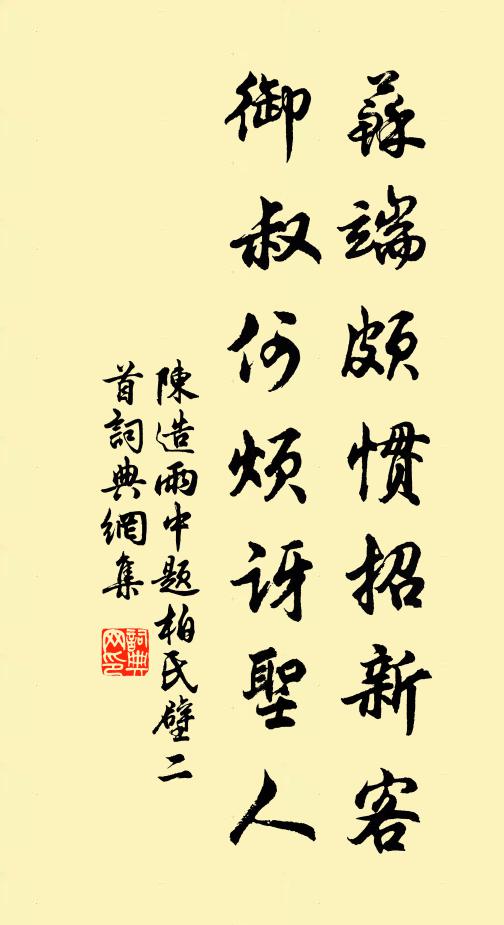 蘇端頗慣招新客
御叔何煩訝聖人
陳造雨中題柏氏壁二
首詞典網集
詞典網印